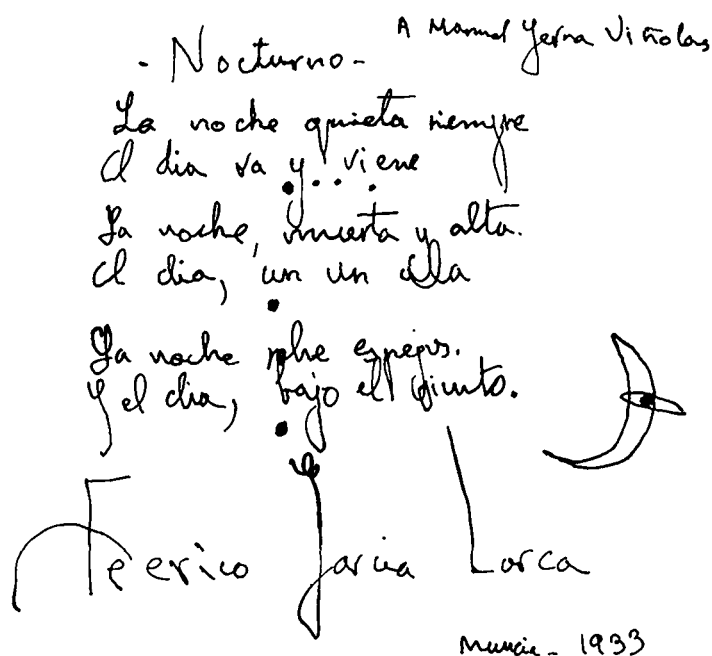 A Manuel Yerna Viñolas
- Nocturno -
La noche quieta siempre
El dia va y viene
La noche, muerta y alta.
El dia, un un ala
La noche sobre espejos.
Y el dia, bajo el viento.
Federico Garcia Lorca
Murcia - 1933